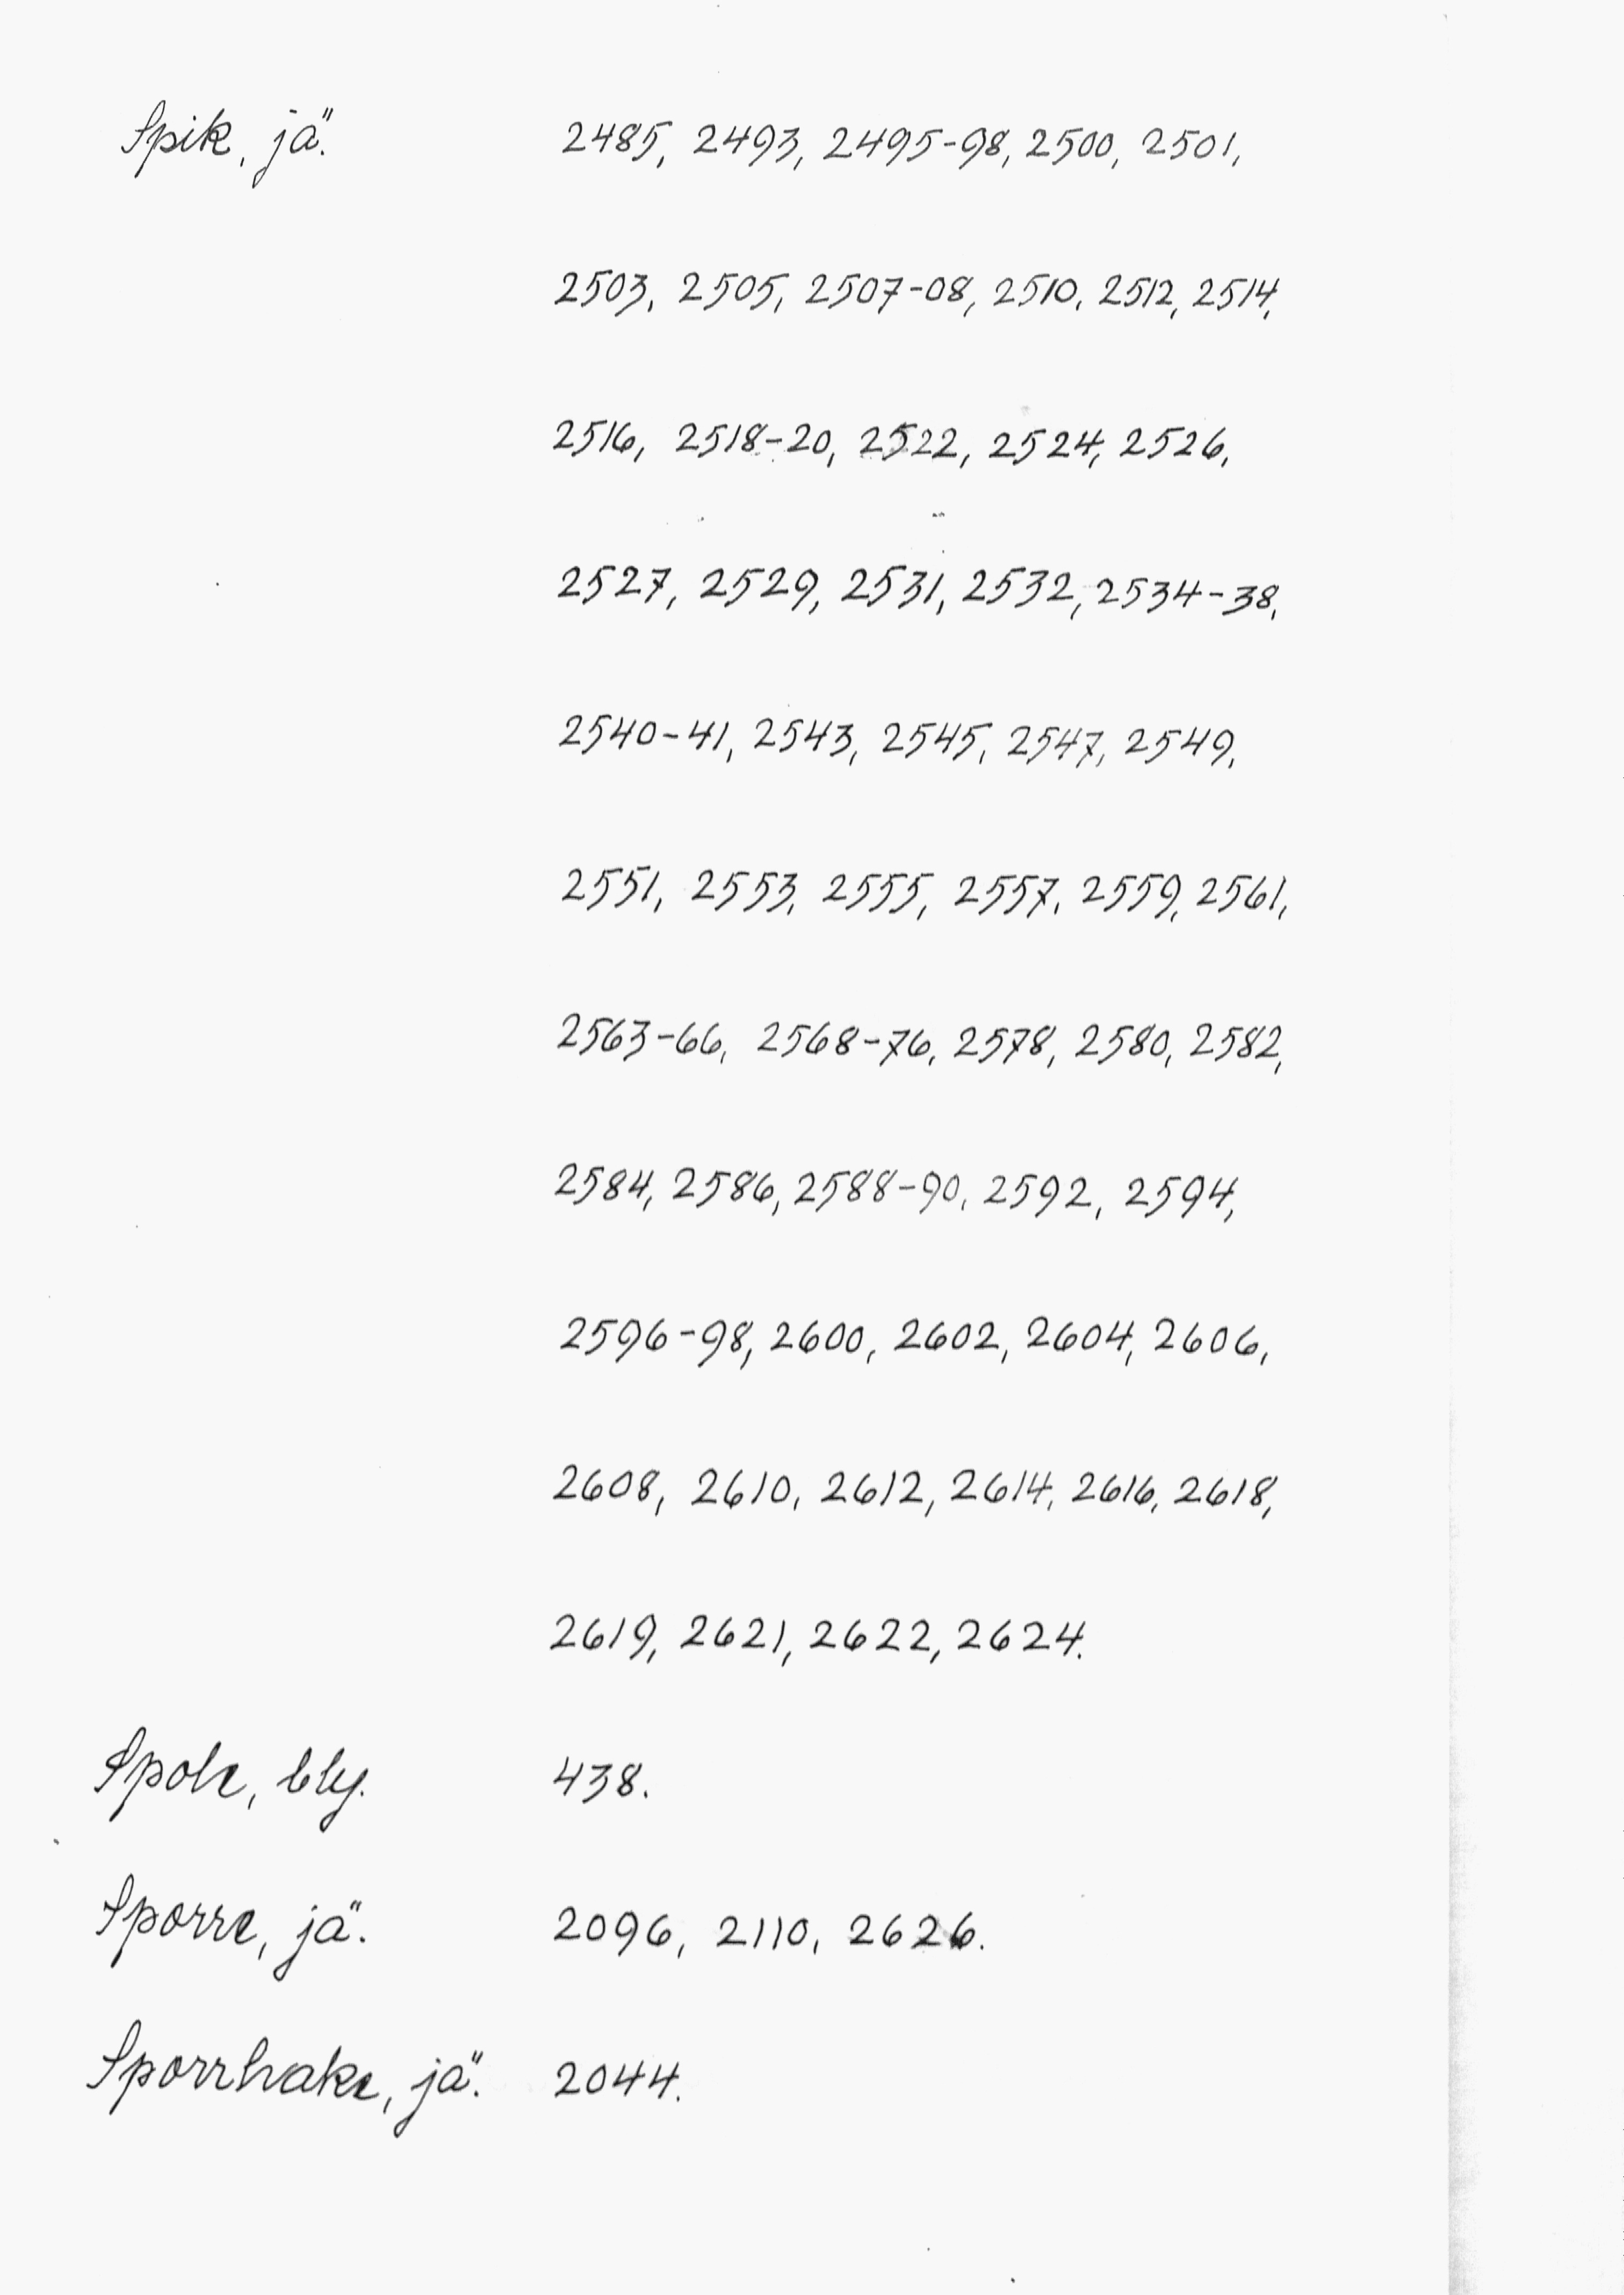 Spik, jä. 2485, 2493, 2495-98, 2500, 2501,
2503, 2505, 2507-08, 2510, 2512, 2514,
2516, 2518-20, 2522, 2524, 2526,
2527, 2529, 2531, 2532, 2534-38,
2540-41, 2543, 2545, 2547, 2549,
2551, 2553, 2555, 2557, 2559, 2561,
2563-66, 2568-76, 2578, 2580, 2582,
2584, 2586, 2588-90, 2592, 2594,
2596-98, 2600, 2602, 2604, 2606,
2608, 2610, 2612, 2614, 2616, 2618,
2619, 2621, 2622, 2624.
Spole, bly. 438.
Sporre, jä. 2096, 2110, 2626.
Sporrhake, jä. 2044.